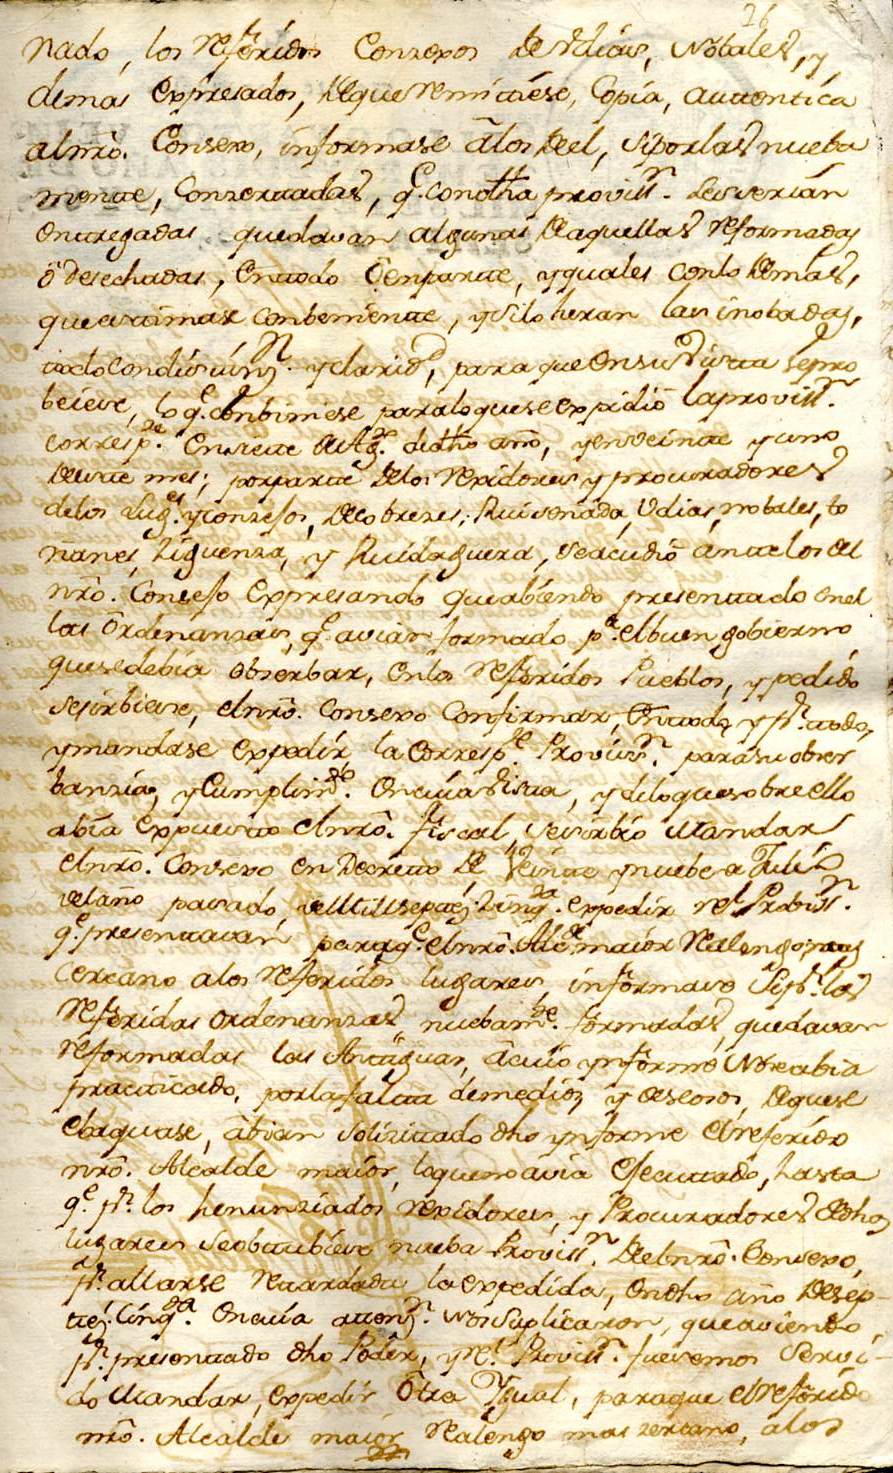 26
nado, los referidos Conzexos de Udias, Nobales, y
demas expresados, de que remitiese, Copia, autentica
al nro. Consexo, informase a los de el, si por las nueba
mente, Conzertadas, q.e con otha provis.n les serian
entregadas quedavan algunas de aquellas reformadas
ô desechadas, en todo ô en parte, y quales con lo demas,
que estimase conbeniente, y si lo heran las inobadas,
todo con distinz.n y claridd, para que en su vista se pro
beiese, lo q.e conbiniese para lo que se expidiô la provis.n
corresp.te en siete de Ag.to de dho año, y en veinte y uno
de este mes; por parte de los rexidores y procuradores
de los Lug.es y conzesos, de Cobrezes, Ruiseñada, Udias, nobales, to
ñanes, Ziguenza, y Ruidaguera, se acudiô ante los de el
nrô. Consejo expresando que abiendo presentado en el
las Ordenanzas, q.e avian formado p.a el buen gobierno
que se debia obserbar, en los referidos Pueblos, y pedido
se sirbiese, el nrô. Consexo Confirmar, en todo, y p.r todo,
y mandase expedir, la corresp.te Provis.n para su obser
banzia, y Cumplim.to en cuia vista, y de lo que sobre ello
abia expuesto el nrô. fiscal, se sirbiô mandar
el nrô. Consexo en Decreto de Veinte y nuebe de Julio
del año pasado, de Mill septez.s Zinq.ta expedir rl Provis.n
q.e presentavan para q.e el nrô. Alc.de maior Realengo mas
cercano a los referidos lugares, informase si p.r las
referidas ordenanzas nuebam.te formadas, quedavan
reformadas las Antiguas, â cuio ynforme no se abia
practicado, por la falta de medios, y deseosos, de que se
ebaquase, âbian solizitado dho ynforme el referido
nrô. Alcalde maior, lo que no avia efecutado, hasta
q.e p.r los henunziados rexidores, y Procuradores de dhos
lugares se obtubiese nueba Provis.n del nrô. Consexo,
p.r allarse retardada la expedida, en dho año de sep
tez.s Cinq.ta en cuia atenz.n nos suplicaron, que aviendo
p.r presentado dho Poder, y rl Provis.n fuesemos servi-
do mandar, expedir Ôtra Ygual, para que el referido
nrô. Alcalde maior Realengo mas zercano, a los